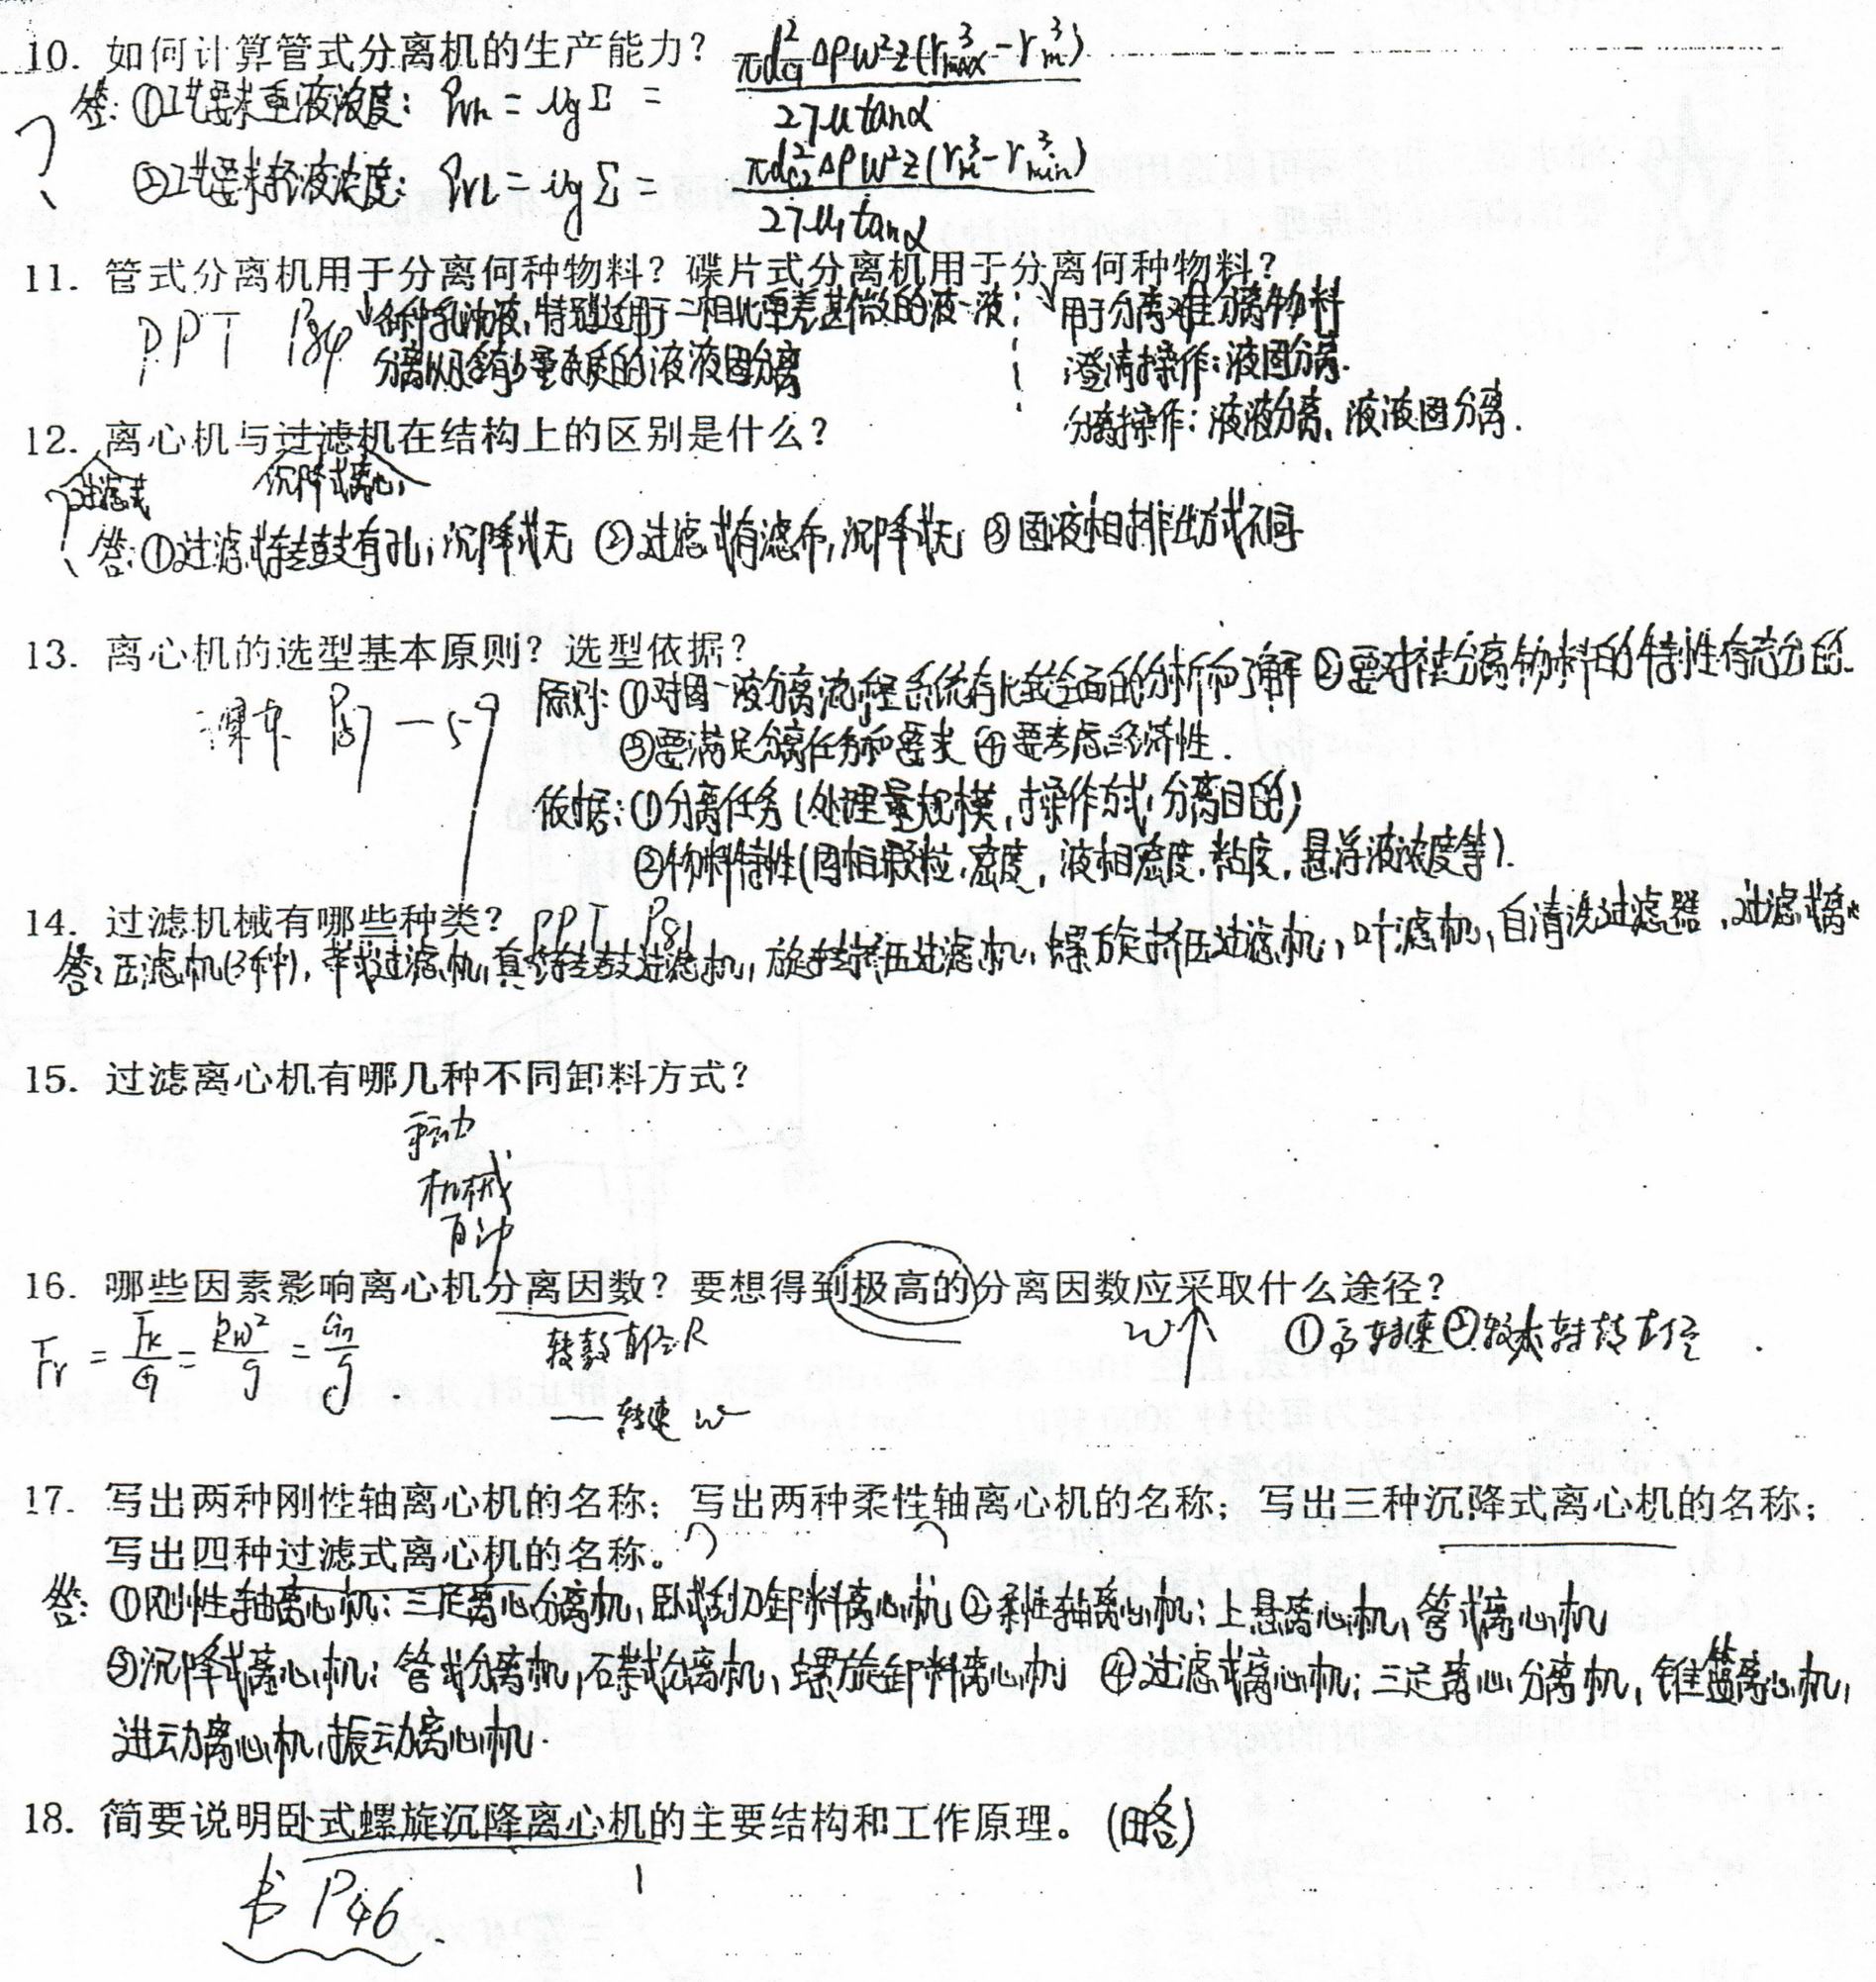 10. 如何计算管式分离机的生产能力?
答: ①工艺要求重液浓度: qvh = ugΣ = πd²c1ΔρW²z(r³max - r³m) / 27μtanα
②工艺要求轻液浓度: qvl = ugΣ = πd²c2ΔρW²z(r³m - r³min) / 27μ1tanα
11. 管式分离机用于分离何种物料? 碟片式分离机用于分离何种物料?
PPT P84 ↓各种乳浊液,特别适用于二相比重差甚微的液-液; 用于分离难分离物料
分离以及含有少量杂质的液液固分离 澄清操作:液固分离.
分离操作: 液液分离, 液液固分离.
12. 离心机与过滤机在结构上的区别是什么?
过滤式 沉降式离心
答:①过滤式转鼓有孔,沉降式无 ②过滤式有滤布,沉降式无 ③固液相排出方式不同
13. 离心机的选型基本原则? 选型依据?
课本 P57—59
原则: ①对固-液分离流程系统有比较全面的分析和了解 ②要对待分离物料的特性有充分的
③要满足分离任务和要求 ④要考虑经济性.
依据:①分离任务(处理量规模,操作方式,分离目的)
②物料特性(固相颗粒,密度,液相密度,粘度,悬浮液浓度等).
14. 过滤机械有哪些种类? PPT P81
答: 压滤机(3种), 带式过滤机,真空转鼓过滤机, 旋转挤压过滤机, 螺旋挤压过滤机, 叶滤机, 自清洗过滤器, 过滤式离心
15. 过滤离心机有哪几种不同卸料方式?
手动
机械
自动
16. 哪些因素影响离心机分离因数? 要想得到极高的分离因数应采取什么途径?
Fr = Fk/G = RW²/g = Gn/g .
转鼓直径R
W↑
①高转速②较大转鼓直径
— 转速 w
17. 写出两种刚性轴离心机的名称; 写出两种柔性轴离心机的名称; 写出三种沉降式离心机的名称;
写出四种过滤式离心机的名称。
答: ①刚性轴离心机: 三足离心分离机, 卧式刮刀卸料离心机 ②柔性轴离心机: 上悬离心机, 管式离心机
③沉降式离心机: 管式分离机,碟式分离机, 螺旋卸料离心机 ④过滤式离心机: 三足离心分离机, 锥篮离心机,
进动离心机,振动离心机.
18. 简要说明卧式螺旋沉降离心机的主要结构和工作原理。(略)
书 P46.